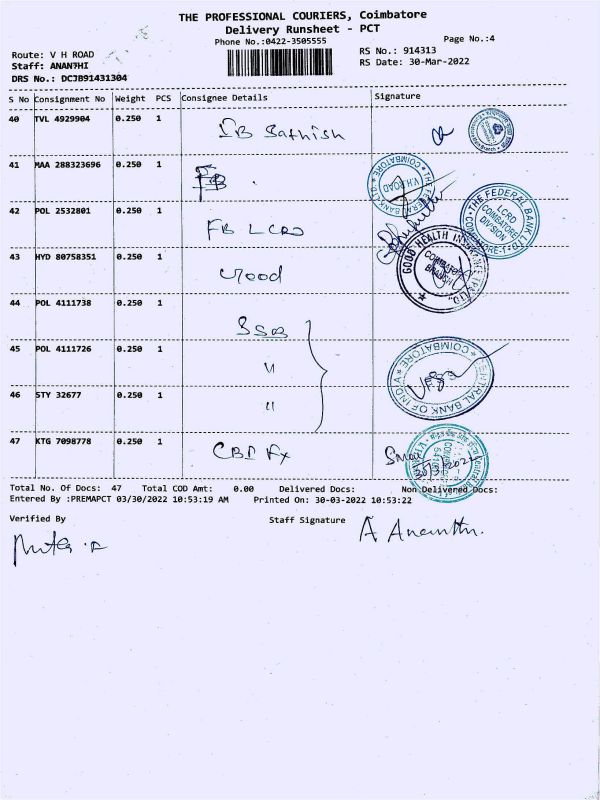 THE PROFESSIONAL COURIERS, Coimbatore
Delivery Runsheet - PCT
Phone No.:0422-3505555
Page No.:4
Route: V H ROAD
RS No.: 914313
Staff: ANANTHI
RS Date: 30-Mar-2022
DRS No.: DCJB91431304
S No Consignment No Weight PCS Consignee Details Signature
40 TVL 4929904 0.250 1 Sathish
41 MAA 288323696 0.250 1 FB
42 POL 2532801 0.250 1 FB LCRD
43 HYD 80758351 0.250 1 Good
44 POL 4111738 0.250 1
45 POL 4111726 0.250 1 "
46 STY 32677 0.250 1 "
47 KTG 7098778 0.250 1 CBI Fx
THE FEDERAL BANK LTD
V.H.ROAD
COIMBATORE
THE FEDERAL BANK LTD.
LCRD
COIMBATORE
DIVISION
GOOD HEALTH INSURANCE TPA LTD.
COIMBATORE
BRANCH
CENTRAL BANK OF INDIA
COIMBATORE
Total No. Of Docs: 47 Total COD Amt: 0.00 Delivered Docs: Non Delivered Docs:
Entered By :PREMAPCT 03/30/2022 10:53:19 AM Printed On: 30-03-2022 10:53:22
Verified By Staff Signature
A Ananthi.